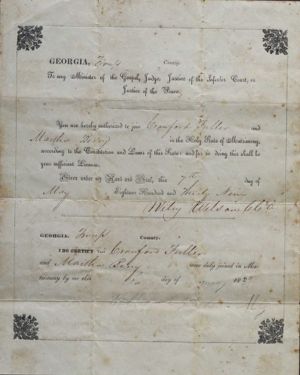 GEORGIA, Troup County.
To any Minister of the Gospel, Judge, Justice of the Inferior Court, or
Justice of the Peace.
You are hereby authorized to join Crawford Fuller and
Martha Perry in the Holy State of Matrimony,
according to the Constitution and Laws of this State: and for so doing this shall be
your sufficient License.
Given under my Hand and Seal, this 7th day of
May Eighteen Hundred and Thirty Nine
Wiley Clk
GEORGIA, Troup County.
I DO CERTIFY that Crawford Fuller
and Martha Perry were duly joined in Ma-
trimony by me this day of 18